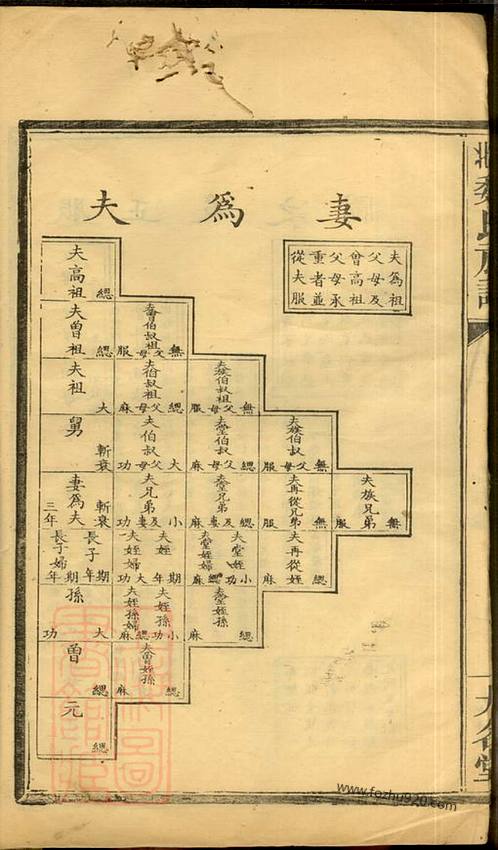 妻為夫
夫為祖
父母及
曾高祖
父母承
重者並
從夫服
夫高祖
緦
夫曾祖
緦
夫曾伯叔祖父母
無服
夫祖
大
夫伯叔祖父母
緦麻
夫族伯叔祖父母
無服
舅
斬衰
夫伯叔父母
大功
夫堂伯叔父母
緦麻
夫族伯叔父母
無服
妻為夫
斬衰三年
夫兄弟及妻
小功
夫堂兄弟及妻
緦麻
夫再從兄弟
無服
夫族兄弟
無服
長子
期年
長子婦
期年
夫姪
期年
夫姪婦
大功
夫堂姪
小功
夫堂姪婦
緦麻
夫再從姪
緦麻
孫
大功
夫姪孫
小功
夫姪孫婦
緦麻
夫堂姪孫
緦麻
曾
緦
夫曾姪孫
緦麻
元
緦
www.fozhu920.com